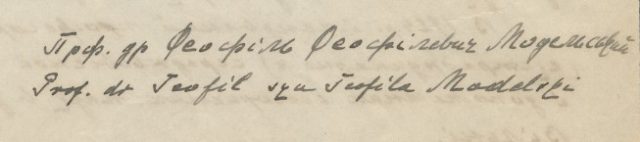 Прф. др Ѳеофіль Ѳеофілевич Модельскій
Prof. dr Teofil syn Teofila Modelski